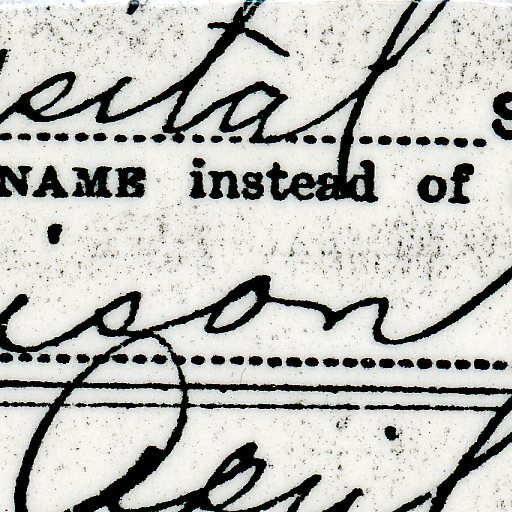 sital S
NAME instead of
ison